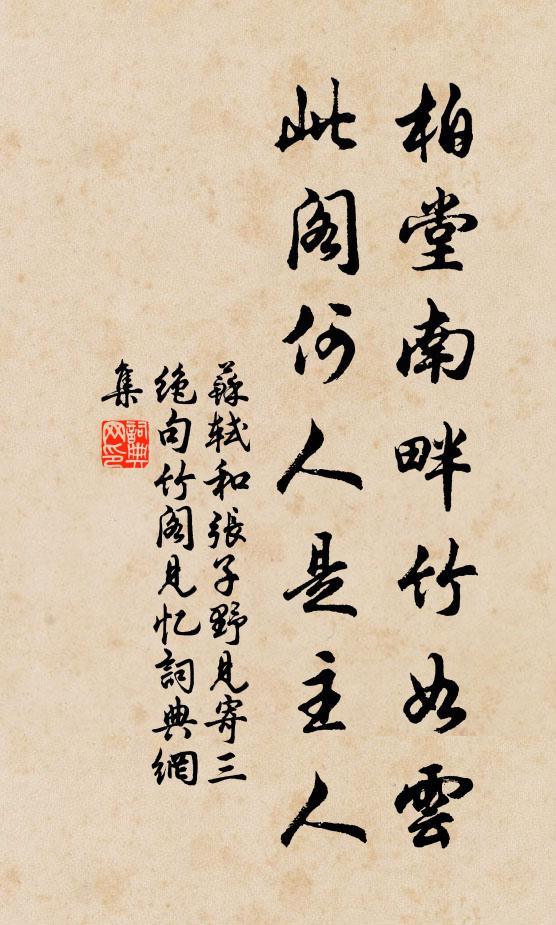 柏堂南畔竹如雲
此阁何人是主人
蘇軾和張子野見寄三
絶句竹阁見忆詞典網
集
詞典
网印